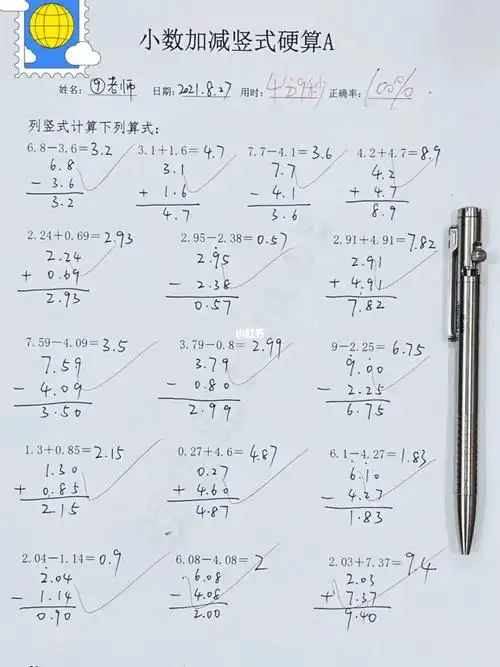 小数加减竖式硬算A
姓名: ⑨老师 日期: 2021.8.27 用时: 4分9秒 正确率: 100%
列竖式计算下列算式:
6.8−3.6=3.2 3.1+1.6=4.7 7.7−4.1=3.6 4.2+4.7=8.9
6.8 3.1 7.7 4.2
− 3.6 + 1.6 − 4.1 + 4.7
3.2 4.7 3.6 8.9
2.24+0.69=2.93 2.95−2.38=0.57 2.91+4.91=7.82
2.24 2.95 2.91
+ 0.69 − 2.38 + 4.91
2.93 0.57 7.82
小红书
7.59−4.09=3.5 3.79−0.8=2.99 9−2.25=6.75
7.59 3.79 9.00
− 4.09 − 0.80 − 2.25
3.50 2.99 6.75
1.3+0.85=2.15 0.27+4.6=4.87 6.1−4.27=1.83
1.30 0.27 6.10
+ 0.85 + 4.60 − 4.27
2.15 4.87 1.83
2.04−1.14=0.9 6.08−4.08=2 2.03+7.37=9.4
2.04 6.08 2.03
− 1.14 − 4.08 + 7.37
0.90 2.00 9.40